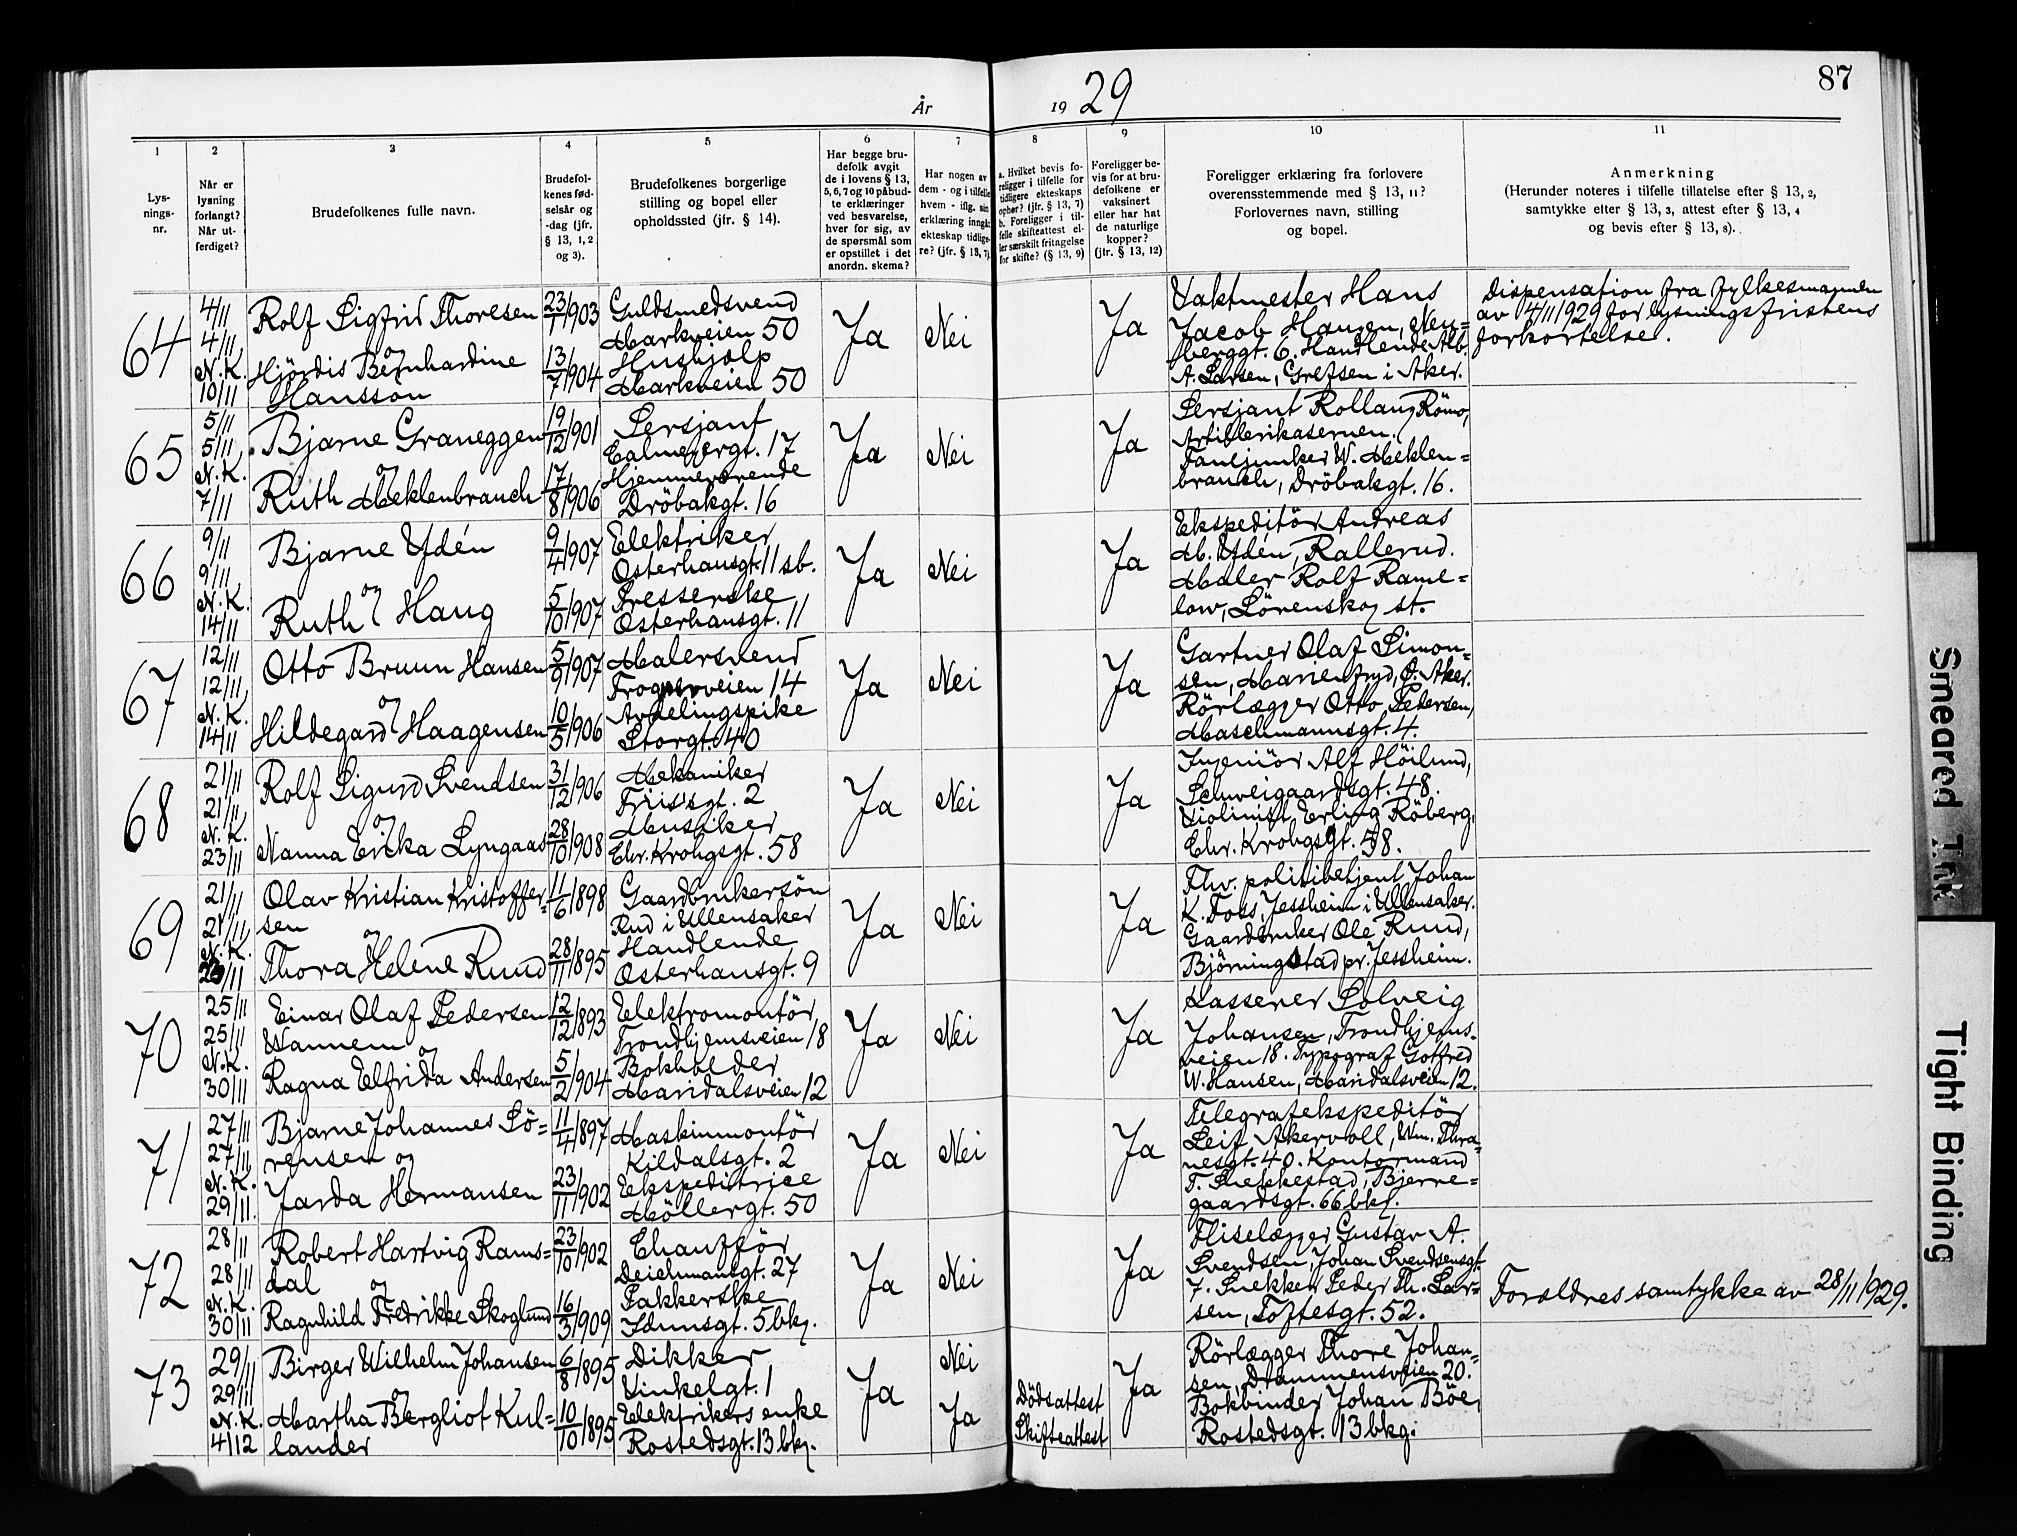 87
År 19 29
1
Lysnings-nr.
2
Når er lysning forlangt? Når utferdiget?
3
Brudefolkenes fulle navn.
4
Brudefolkenes fødselsår og -dag (jfr. § 13, 1, 2 og 3).
5
Brudefolkenes borgerlige stilling og bopel eller opholdssted (jfr. § 14).
6
Har begge brudefolk avgit de i lovens § 13, 5, 6, 7 og 10 påbudte erklæringer ved besvarelse, hver for sig, av de spørsmål som er opstillet i det anordn. skema?
7
Har nogen av dem - og i tilfelle hvem - iflg. sin erklæring inngått ekteskap tidligere? (jfr. § 13, 7)
8
a. Hvilket bevis foreligger i tilfelle for tidligere ekteskaps ophør? (jfr. § 13, 7)
b. Foreligger i tilfelle skifteattest eller særskilt fritagelse for skifte? (§ 13, 9)
9
Foreligger bevis for at brudefolkene er vaksinert eller har hat de naturlige kopper? (jfr. § 13, 12)
10
Foreligger erklæring fra forlovere overensstemmende med § 13, 11? Forlovernes navn, stilling og bopel.
11
Anmerkning
(Herunder noteres i tilfelle tillatelse efter § 13, 2, samtykke efter § 13, 3, attest efter § 13, 4 og bevis efter § 13, 8).
64
4/11
4/11
N. K.
10/11
Rolf Sigfrid Thoresen
og
Hjördis Bernhardine
Hansson
23/1 1903
13/7 1904
Guldsmedsvend
Markveien 50
Hushjelp
Markveien 50
Ja
Nei
Ja
Vaktmester Hans
Jacob Hansen, Neu-
berggt. 6. Handlende Alb.
A. Larsen, Grefsen i Aker.
Dispensation fra fylkesmannen
av 4/11 1929 for lysningsfristens
forkortelse.
65
5/11
5/11
N. K.
7/11
Bjarne Graneggen
og
Ruth Meklenbrauch
19/12 1901
17/8 1906
Sersjant
Calmeyergt. 17
Hjemmeværende
Dröbakgt. 16
Ja
Nei
Ja
Sersjant Rollaug Römo,
Artillerikasernen.
Fanejunker W. Meklen-
brauch, Dröbakgt. 16.
66
9/11
9/11
N. K.
14/11
Bjarne Ydén
og
Ruth Haug
9/4 1907
5/10 1907
Elektriker
Osterhausgt. 11 sb.
Presserske
Osterhausgt. 11
Ja
Nei
Ja
Ekspeditör Andreas
M. Ydén, Rallerud.
Maler Rolf Rame-
low, Lörenskog st.
67
12/11
12/11
N. K.
14/11
Otto Bruun Hansen
og
Hildegard Haagensen
5/9 1907
10/5 1906
Malersvend
Frognerveien 14
Avdelingspike
Storgt. 40
Ja
Nei
Ja
Gartner Olaf Simon-
sen, Marienfryd, Ö. Aker.
Rörlægger Otto Petersen,
Maschmannsgt. 4.
68
21/11
21/11
N. K.
23/11
Rolf Sigurd Svendsen
og
Nanna Ericka Lyngaas
31/12 1906
28/10 1908
Mekaniker
Friisgt. 2
Musiker
Chr. Krohgsgt. 58
Ja
Nei
Ja
Ingeniör Alf Höilund,
Schweigaardsgt. 48.
Violinist Erling Röberg,
Chr. Krohgsgt. 58.
69
21/11
21/11
N. K.
Olav Kristian Kristoffer-
sen
og
Thora Helene Ruud
11/6 1898
28/11 1895
Gaardbrukersön
Rud i Ullensaker
Handlende
Osterhausgt. 9
Ja
Nei
Ja
Fhv. politibetjent Johan
K. Foss, Jessheim i Ullensaker.
Gaardbruker Ole Ruud,
Björningstad pr. Jessheim.
70
25/11
25/11
N. K.
30/11
Einar Olaf Pedersen
Wannem
og
Ragna Elfrida Andersen
12/12 1893
5/2 1904
Elektromontör
Trondhjemsveien 18
Bokholder
Maridalsveien 12
Ja
Nei
Ja
Kasserer Solveig
Johansen, Trondhjems-
veien 18. Typograf Gotfred
W. Hansen, Maridalsveien 12.
71
27/11
27/11
N. K.
29/11.
Bjarne Johannes Sö-
rensen og
Jarda Hermansen
11/4 1897
23/11 1902
Maskinmontör
Kildalsgt. 2
Ekspeditrice
Möllergt. 50
Ja
Nei
Ja
Telegrafekspeditör
Leif Akervoll, Wm. Thra-
nesgt. 40. Kontormand
T. Slekkestad, Bjerre-
gaardsgt. 66 bkg.
72
28/11
28/11
N. K.
30/11
Robert Hartvig Rams-
dal
og
Ragnhild Fredrikke Skoglund
23/10 1902
16/3 1909
Chauffør
Deichmansgt. 27
Pakkerske
Idunsgt. 5 bkg.
Ja
Nei
Ja
Fliselægger Gustav A.
Svendsen, Johan Svendsensgt.
7. Snekker Peder Th. Lar-
sen, Toftesgt. 52.
Forældres samtykke av 28/11 1929.
73
29/11
29/11
N. K.
4/12
Birger Wilhelm Johansen
og
Martha Bergliot Kul-
lander
6/8 1895
10/10 1895
Dikker
Vinkelgt. 1
Elektrikers enke
Rostedsgt. 13 bkg.
Ja
Nei
Ja
Dödsattest
Skifteattest
Ja
Rörlægger Thore Johan-
sen, Drammensveien 20.
Bokbinder Johan Böe,
Rostedsgt. 13 bkg.
Smeared Ink
Tight Binding